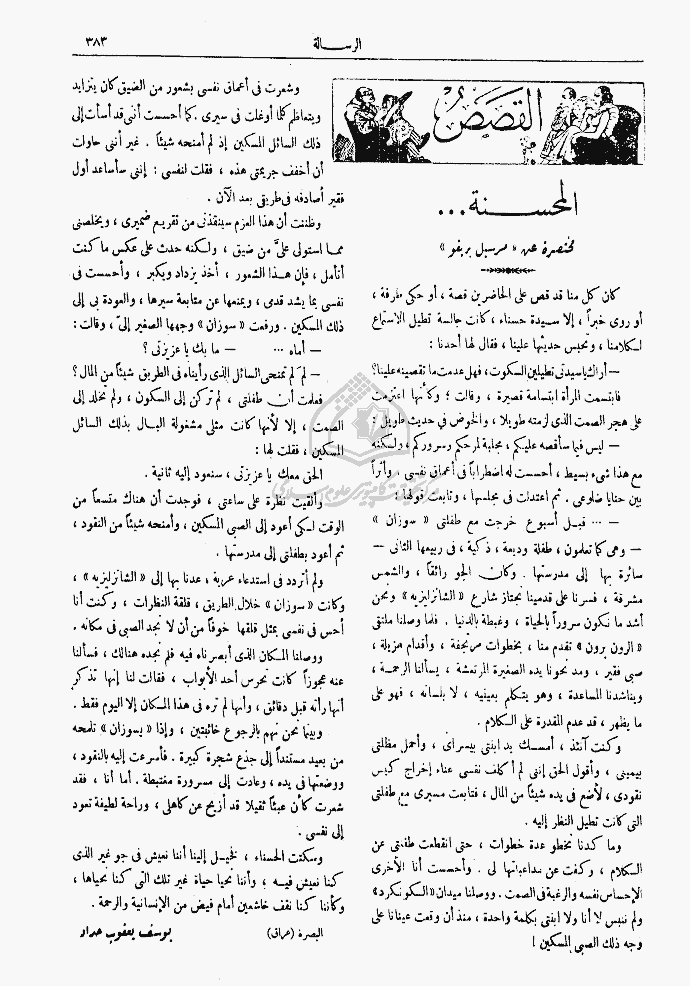 الرسالة
٣٨٣
القصص
المحسنة ...
مختصرة عن « مرسيل بريفو »
كان كل منا قد قص على الحاضرين قصة ، أو حكى طرفة ،
أو روى خبراً ، إلا سيدة حسناء ، كانت جالسة تطيل الاستماع
لكلامنا ، وتحبس حديثها علينا ، فقال لها أحدنا :
— أراك يا سيدتى تطيلين السكوت ، فهل عدمت ما تقصينه علينا ؟
فابتسمت المرأة ابتسامة قصيرة ، وقالت ؛ وكأنها اعتزمت
على هجر الصمت الذى لزمته طويلا ، والخوض فى حديث طويل :
— ليس فيما سأقصه عليكم ، مجلبة لمرحكم وسروركم ، ولكنه
مع هذا شىء بسيط ، أحسست له اضطراباً فى أعماق نفسى . وأثراً
بين حنايا ضلوعى . ثم اعتدلت فى مجلسها ، وتابعت قولها :
— ... قبل أسبوع خرجت مع طفلتى « سوزان »
— وهى كما تعلمون ، طفلة وديعة ، ذكية ، فى ربيعها الثانى —
سائرة بها إلى مدرستها . وكان الجو رائقاً ، والشمس
مشرقة ، فسرنا على قدمينا نجتاز شارع « الشانزليزيه » ونحن
أشد ما نكون سروراً بالحياة ، وغبطة بالدنيا . فلما وصلنا ملتقى
« الرون برون » تقدم منا ، بخطوات مرتجفة ، وأقدام هزيلة ،
صبى فقير ، ومد نحونا يده الصغيرة المرتعشة ، يسألنا الرحمة ،
ويناشدنا المساعدة ، وهو يتكلم بعينيه ، لا بلسانه ، فهو على
ما يظهر ، قد عدم القدرة على الكلام .
وكنت آنئذ ، أمسك يد ابنتى بيسراى ، وأحمل مظلتى
بيمينى ، وأقول الحق إننى لم أكلف نفسى عناء إخراج كيس
نقودى ، لأضع فى يده شيئاً من المال ، فتابعت مسيرى مع طفلتى
التى كانت تطيل النظر إليه .
وما كدنا نخطو عدة خطوات ، حتى انقطعت طفلتى عن
الكلام ، وكفت عن مداعباتها لى . وأحسست أنا الأخرى
الإحساس نفسه والرغبة فى الصمت . ووصلنا ميدان « الكونكرد »
ولم ننبس لا أنا ولا ابنتى بكلمة واحدة ، منذ أن وقعت عينانا على
وجه ذلك الصبى المسكين !
وشعرت فى أعماق نفسى بشعور من الضيق كان يتزايد
ويتعاظم كلما أوغلت فى سيرى . كما أحسست أننى قد أسأت إلى
ذلك السائل المسكين إذ لم أمنحه شيئاً . غير أننى حاولت
أن أخفف جريمتى هذه ، فقلت لنفسى : إننى سأساعد أول
فقير أصادفه فى طريقى بعد الآن .
وظننت أن هذا العزم سينقذنى من تقريع ضميرى ، ويخلصنى
مما استولى علىّ من ضيق ، ولكنه حدث على عكس ما كنت
أتأمل ، فإن هذا الشعور ، أخذ يزداد ويكبر ، وأحسست فى
نفسى بما يشد قدمى ، ويمنعها عن متابعة سيرها ، والعودة بى إلى
ذلك المسكين . ورفعت « سوزان » وجهها الصغير إلىّ ، وقالت :
— أماه ... — ما بك يا عزيزتى ؟
— لم َ لم تمنحى السائل الذى رأيناه فى الطريق شيئاً من المال ؟
فعلمت أن طفلتى ، لم تركن إلى السكون ، ولم تخلد إلى
الصمت ، إلا لأنها كانت مثلى مشغولة البال بذلك السائل
المسكين ، فقلت لها :
الحق معك يا عزيزتى ، سنعود إليه ثانية .
وألقيت نظرة على ساعتى ، فوجدت أن هناك متسعاً من
الوقت لكى أعود إلى الصبى المسكين ، وأمنحه شيئاً من النقود ،
ثم أعود بطفلتى إلى مدرستها .
ولم أتردد فى استدعاء عربة ، عدنا بها إلى « الشانزليزيه » ،
وكانت « سوزان » خلال الطريق ، قلقة النظرات ، وكنت أنا
أحس فى نفسى بمثل قلقها خوفاً من أن لا نجد الصبى فى مكانه .
ووصلنا المكان الذى أبصرناه فيه فلم نجده هنالك ، فسألنا
عنه عجوزاً كانت تحرس أحد الأبواب ، فقالت لنا إنها تذكر
أنها رأته قبل دقائق ، وأنها لم تره فى هذا المكان إلا اليوم فقط .
وبينما نحن نهم بالرجوع خائبتين ، وإذا « بسوزان » تلمحه
من بعيد مستنداً إلى جذع شجرة كبيرة . فأسرعت إليه بالنقود ،
ووضعتها فى يده ، وعادت إلى مسرورة مغتبطة . أما أنا ، فقد
شعرت كأن عبئاً ثقيلا قد أزيح عن كاهلى ، وراحة لطيفة تعود
إلى نفسى .
وسكتت الحسناء ، فخيل إلينا أننا نعيش فى جو غير الذى
كنا نعيش فيه ؛ وأننا نحيا حياة غير تلك التى كنا نحياها ،
وكأننا كنا نقف خاشعين أمام فيض من الإنسانية والرحمة .
البصرة ( عراق )
يوسف يعقوب حداد